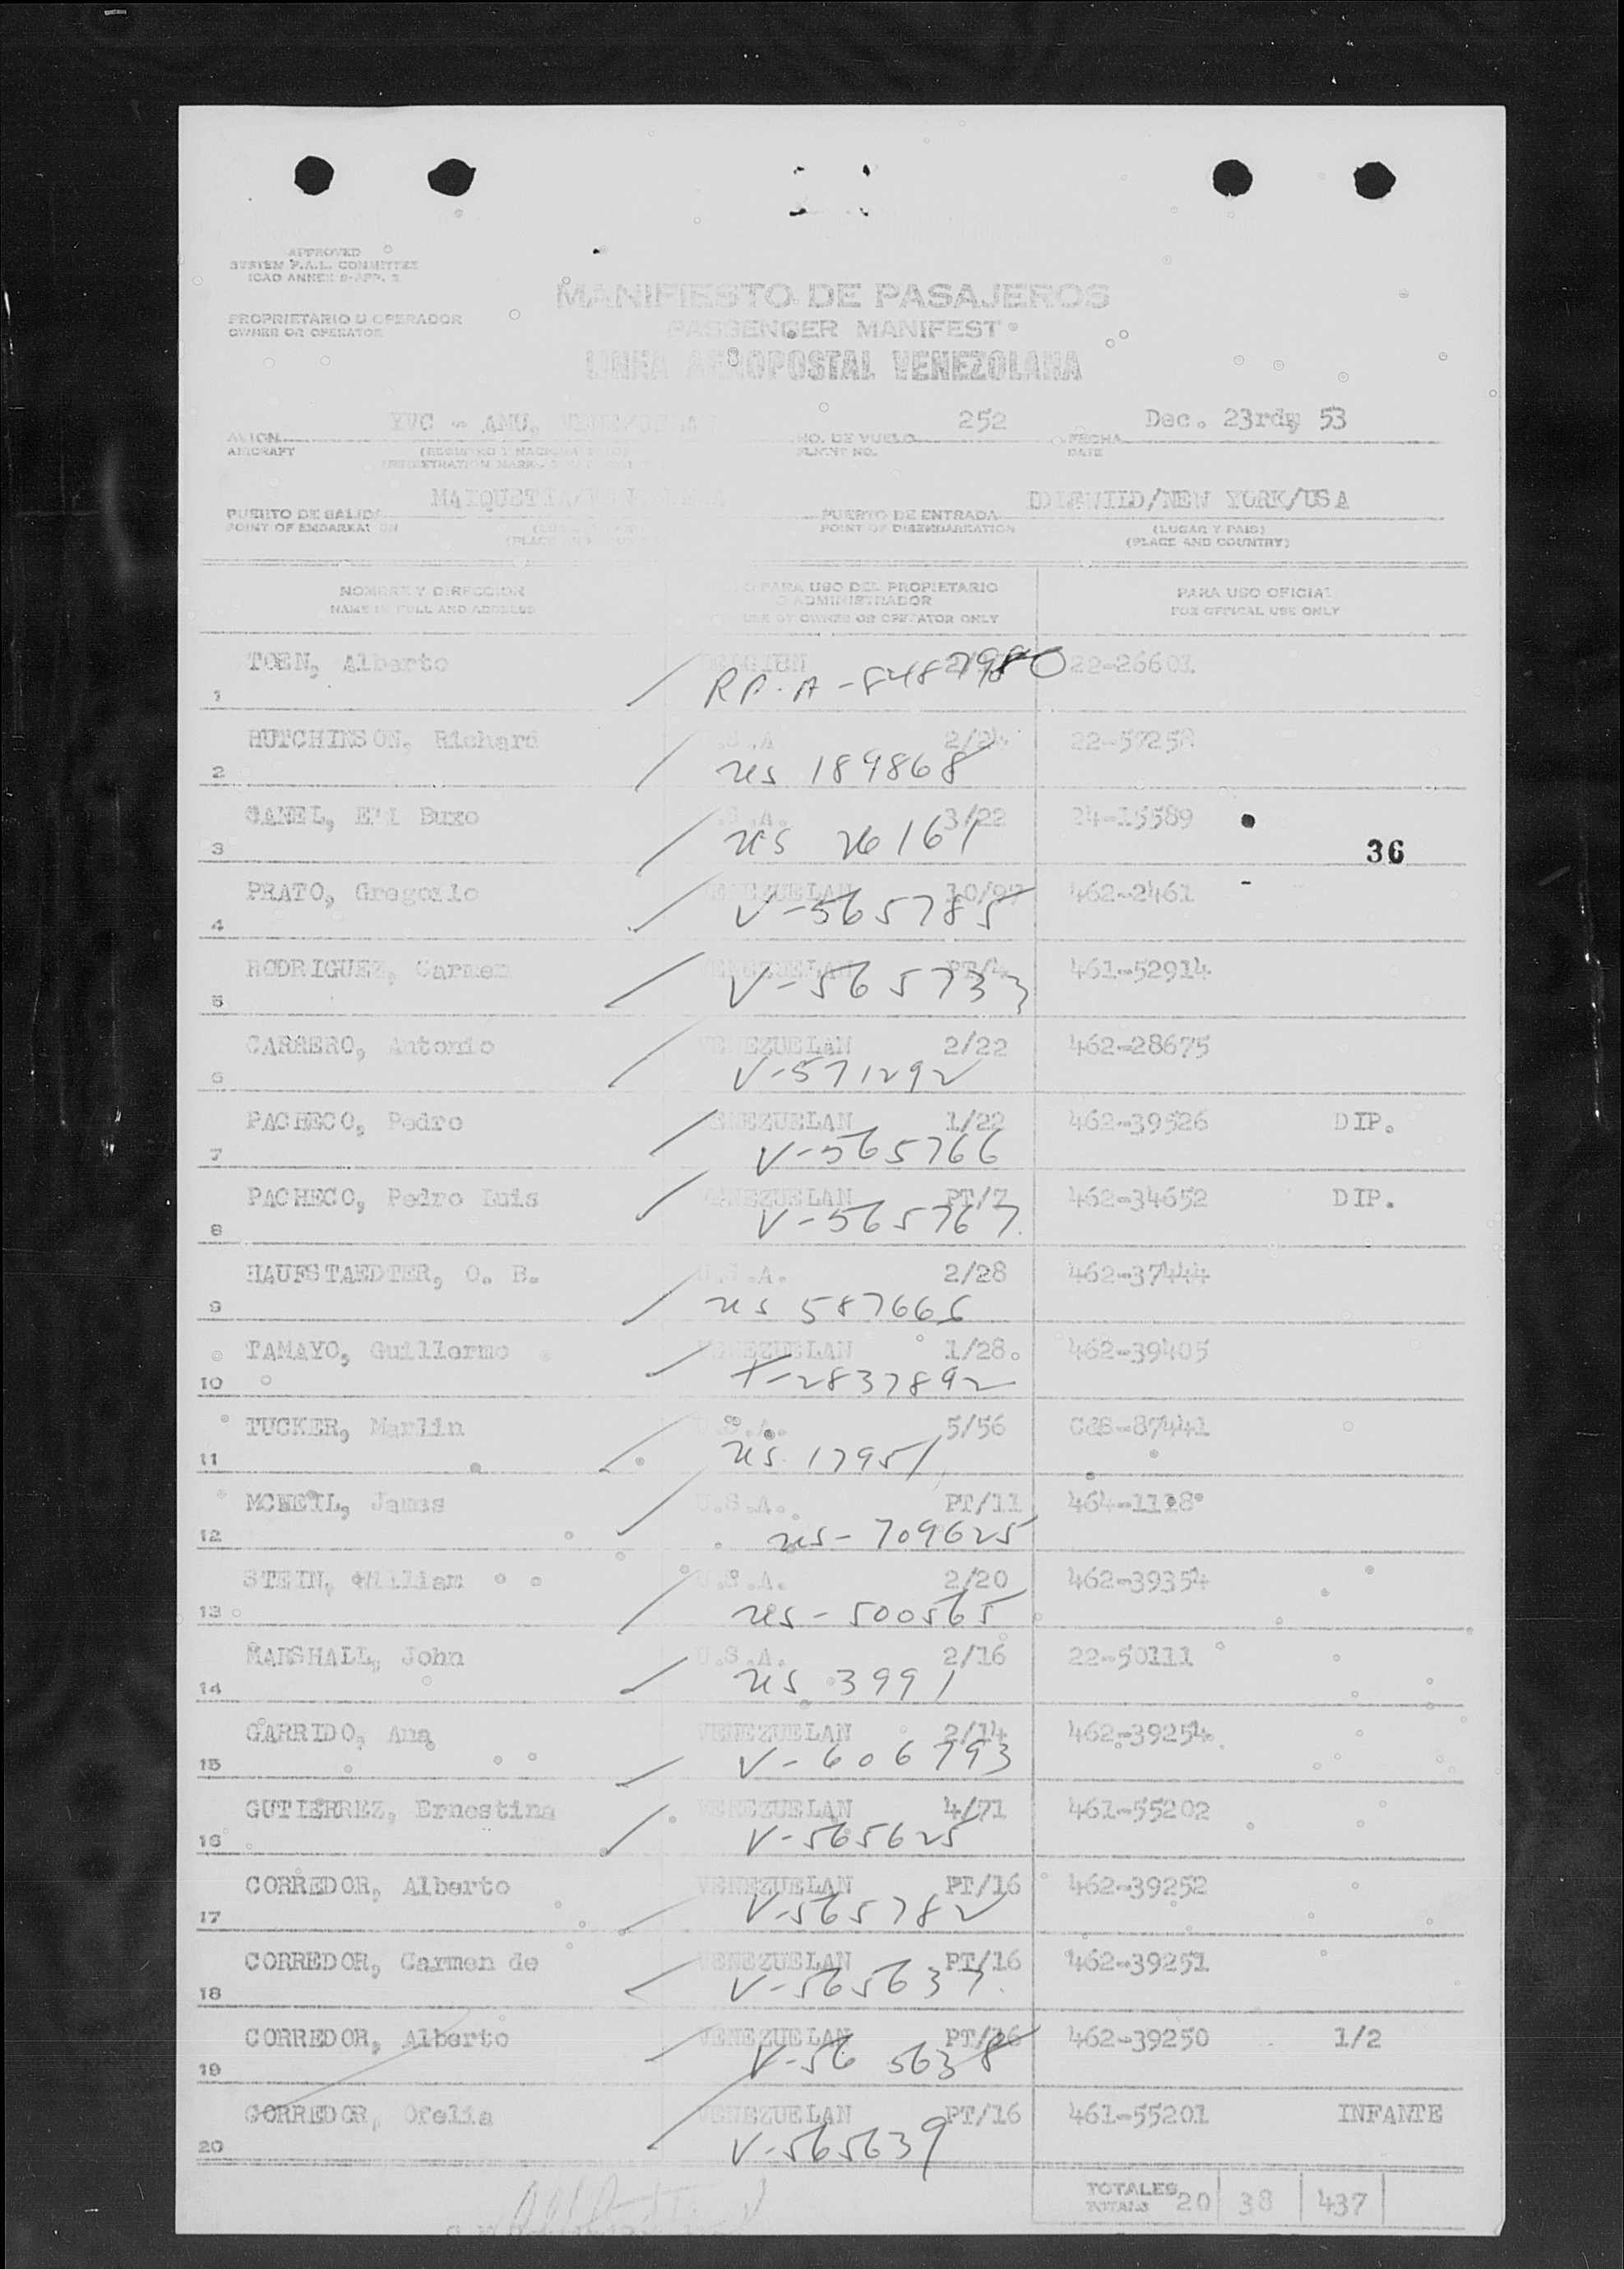 APPROVED
SYSTEM F.A.L. COMMITTEE
ICAO ANNEX 9-APP. 2
MANIFIESTO DE PASAJEROS
PROPRIETARIO U OPERADOR
OWNER OR OPERATOR
PASSENGER MANIFEST
LINEA AEROPOSTAL VENEZOLANA
YVC - AMU, 252 Dec. 23rd, 53
AVION NO. DE VUELO FECHA
AIRCRAFT FLIGHT NO. DATE
IDLEWILD/NEW YORK/USA
PUERTO DE SALIDA PUERTO DE ENTRADA
POINT OF EMBARKATION POINT OF DISEMBARKATION
(LUGAR Y PAIS)
(PLACE AND COUNTRY)
NOMBRE Y DIRECCION PARA USO DEL PROPIETARIO PARA USO OFICIAL
NAME IN FULL AND ADDRESS O ADMINISTRADOR FOR OFFICAL USE ONLY
USE OF OWNER OR OPERATOR ONLY
TOEN, Alberto 22-26601
1 RP. A-8487980
HUTCHINSON, Richard 2/24 22-57258
2 US 189868
3/22 24-15589
3 US 26161
36
PRATO, Gregorio VENEZUELAN 462-2461
4 V-565785
RODRIGUEZ, Carmen VENEZUELAN PT/4 461-52914
5 V-565733
CARRERO, Antonio VENEZUELAN 2/22 462-28675
6 V-571292
PACHECO, Pedro VENEZUELAN 1/22 462-39526 DIP.
7 V-565766
PACHECO, Pedro Luis VENEZUELAN PT/7 462-34652 DIP.
8 V-565767
HAUFSTAEDTER, O. B. U.S.A. 2/28 462-37444
9 US 587666
TAMAYO, Guillermo VENEZUELAN 1/28. 462-39405
10 T-2837892
TUCKER, Marlin U.S.A. 5/56 C&S-87441
11 US 17951
MCNEIL, James U.S.A. PT/11 464-1118
12 US-709625
STEIN, William U.S.A. 2/20 462-39354
13 US-500565
MARSHALL, John U.S.A. 2/16 22-50111
14 US 3991
GARRIDO, Ana VENEZUELAN 2/14 462-39254
15 V-606793
GUTIERREZ, Ernestina VENEZUELAN 4/71 461-55202
16 V-565625
CORREDOR, Alberto VENEZUELAN PT/16 462-39252
17 V-565782
CORREDOR, Carmen de VENEZUELAN PT/16 462-39251
18 V-565637
CORREDOR, Alberto VENEZUELAN PT/16 462-39250 1/2
19 V-565638
CORREDOR, Ofelia VENEZUELAN PT/16 461-55201 INFANTE
20 V-565639
TOTALES
TOTALS 20 38 437